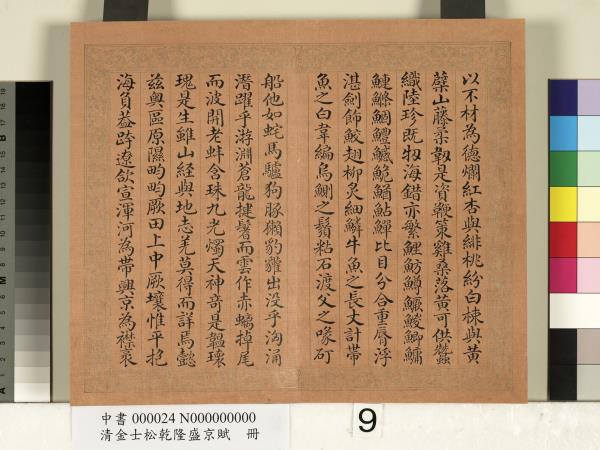 以不材為德爛紅杏與緋桃紛白棟與黃
蘗山藤柔韌是資鞭策雞桑落黃可供蠶
織陸珍既牣海錯亦繁鯉魴鱒鱖鯪鯽鱅
鰱鰷鯛鱧鱵鮠鰌鮎鱓比目分合重脣浮
湛劍飾鮫翅柳炙細鱗牛魚之長丈計帶
魚之白韋編烏鰂之鬚粘石渡父之喙矴
船他如蛇馬驢狗豚獺豹貛出没乎洶涌
潛躍乎游淵蒼龍揵鬐而雲作赤螭掉尾
而波開老蚌含珠九光燭天神奇是韞瓌
瑰是生雖山經與地志羌莫得而詳焉懿
茲輿區原隰畇畇厥田上中厥壤惟平挹
海負葢跨遼欱宣渾河為帶興京為襟裘
中書 000024 N000000000
清金士松乾隆盛京賦 冊
9